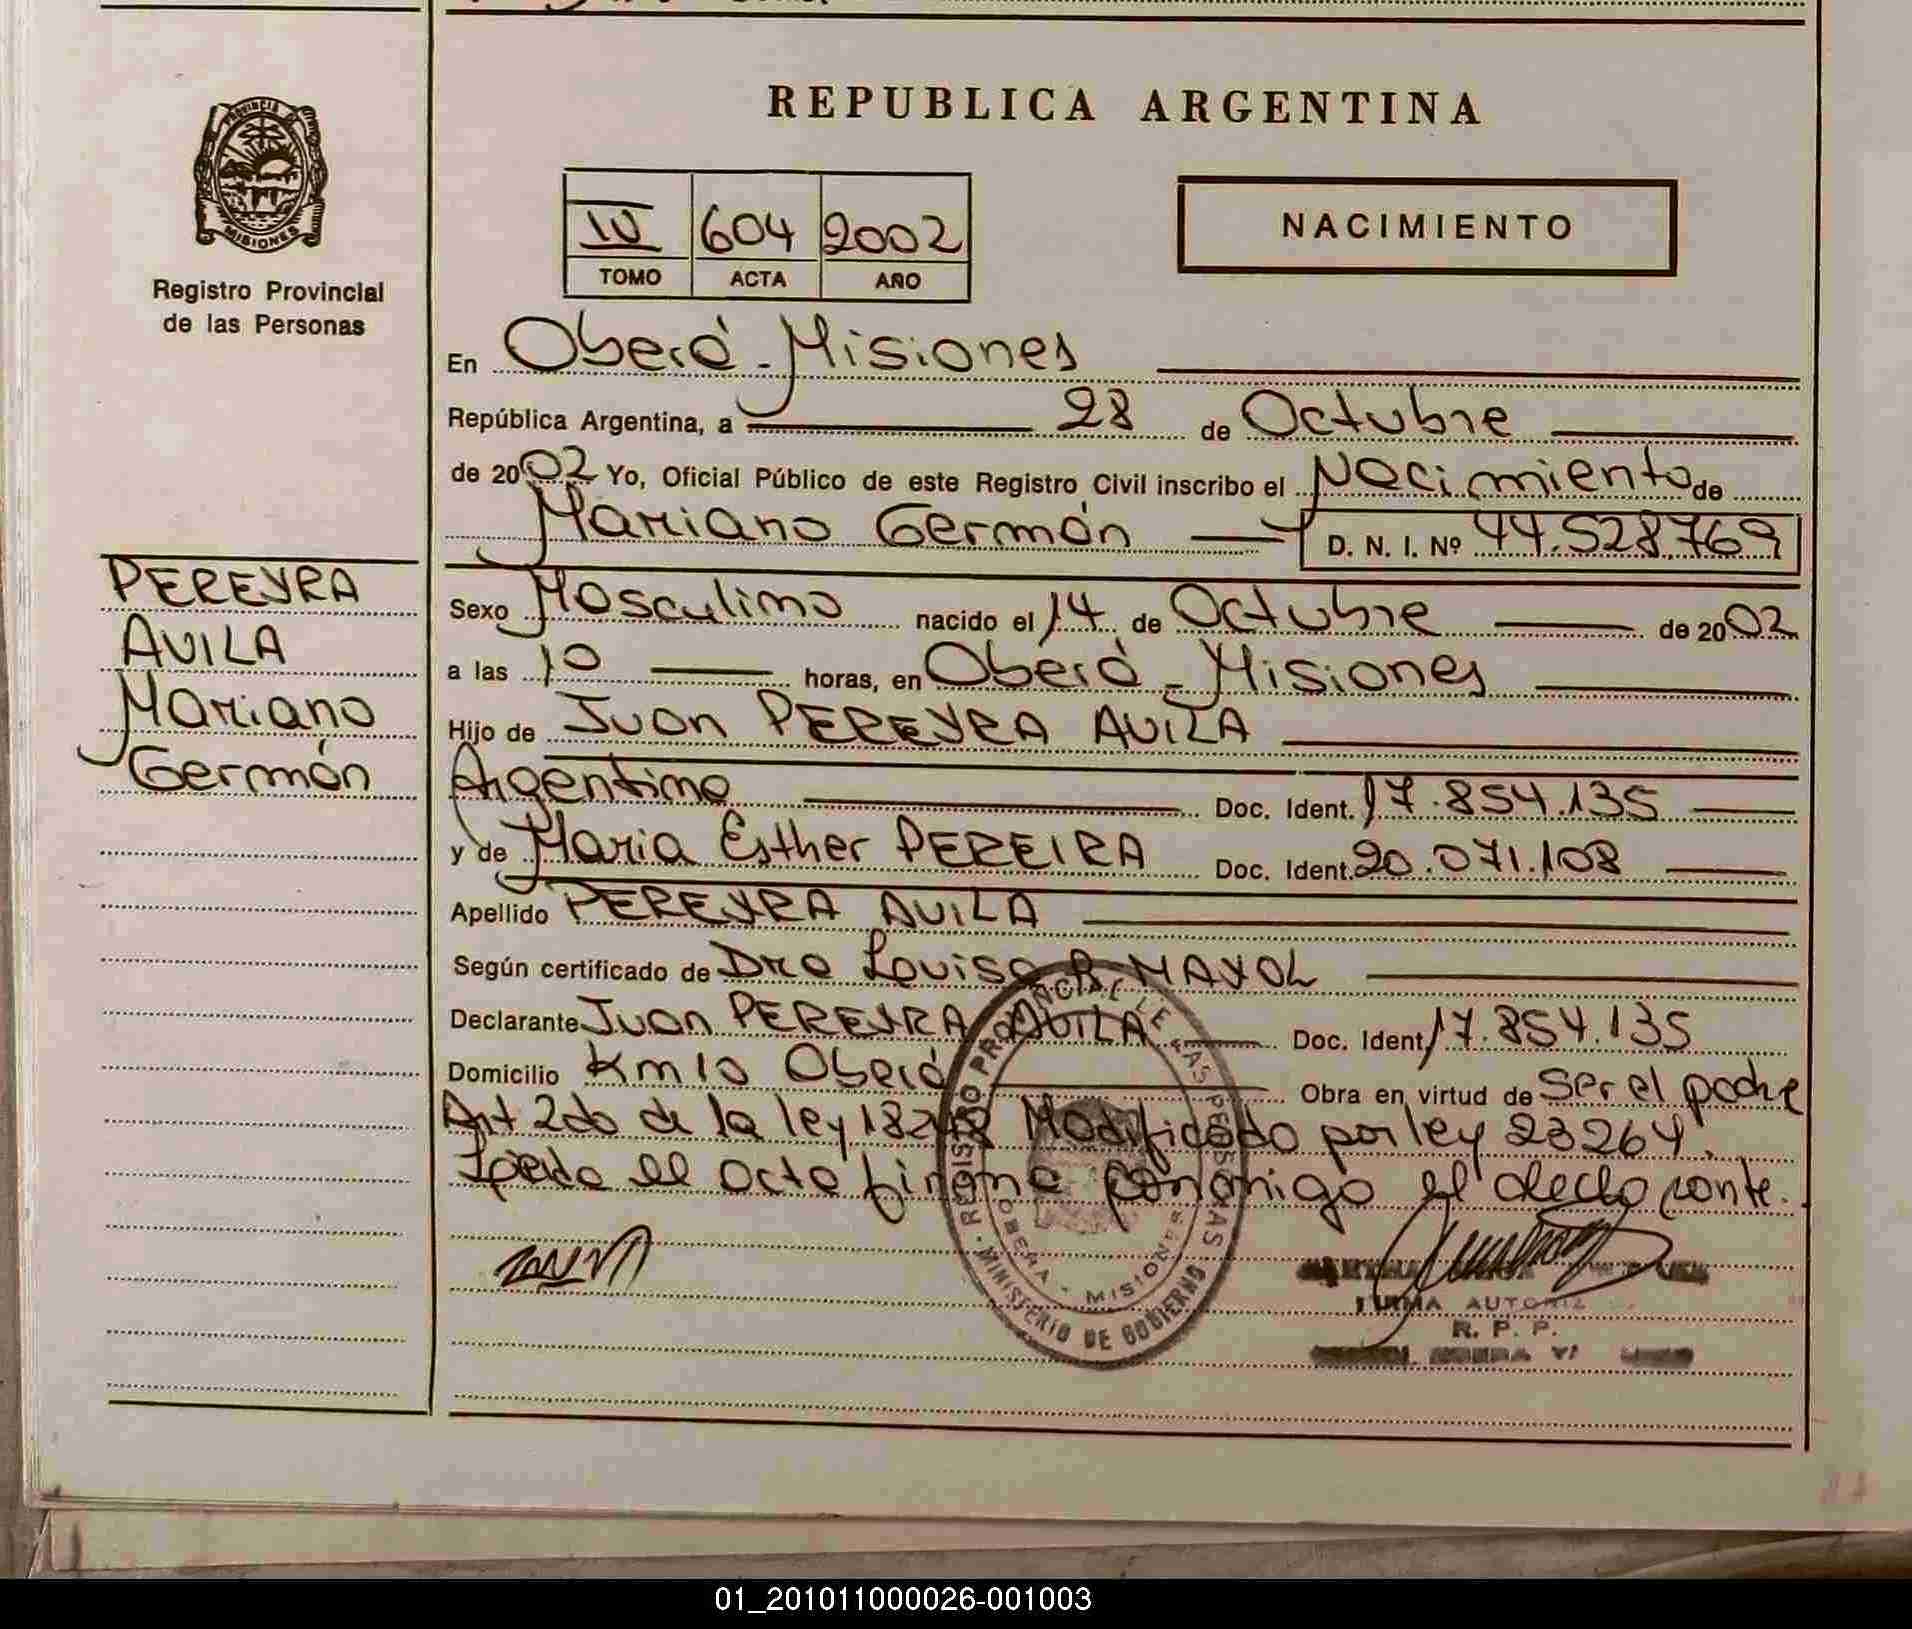 REPUBLICA ARGENTINA
PROVINCIA
MISIONES
Registro Provincial
de las Personas
IV 604 2002
TOMO ACTA AÑO
NACIMIENTO
En Oberá - Misiones
República Argentina, a 28 de Octubre
de 2002 Yo, Oficial Público de este Registro Civil inscribo el Nacimiento de
Mariano Germán D. N. I. Nº 44.528769
PEREYRA
AVILA
Mariano
Germán
Sexo Masculino nacido el 14 de Octubre de 2002
a las 10 horas, en Oberá - Misiones
Hijo de Juan PEREYRA AVILA
Argentino Doc. Ident. 17.854.135
y de Maria Esther PEREIRA Doc. Ident. 20.071.108
Apellido PEREYRA AVILA
Según certificado de Dra Louisa R MAYOL
Declarante Juan PEREYRA AVILA Doc. Ident. 17.854.135
Domicilio Km 10 Oberá Obra en virtud de Ser el padre
Art 2do de la ley 18248 Modificado por ley 23264.
el acta firma conmigo el declarante.
REGISTRO PROVINCIAL DE LAS PERSONAS
OBERA - MISIONES
MINISTERIO DE GOBIERNO
FIRMA AUTORIZ
R. P. P.
OBERA
01_201011000026-001003